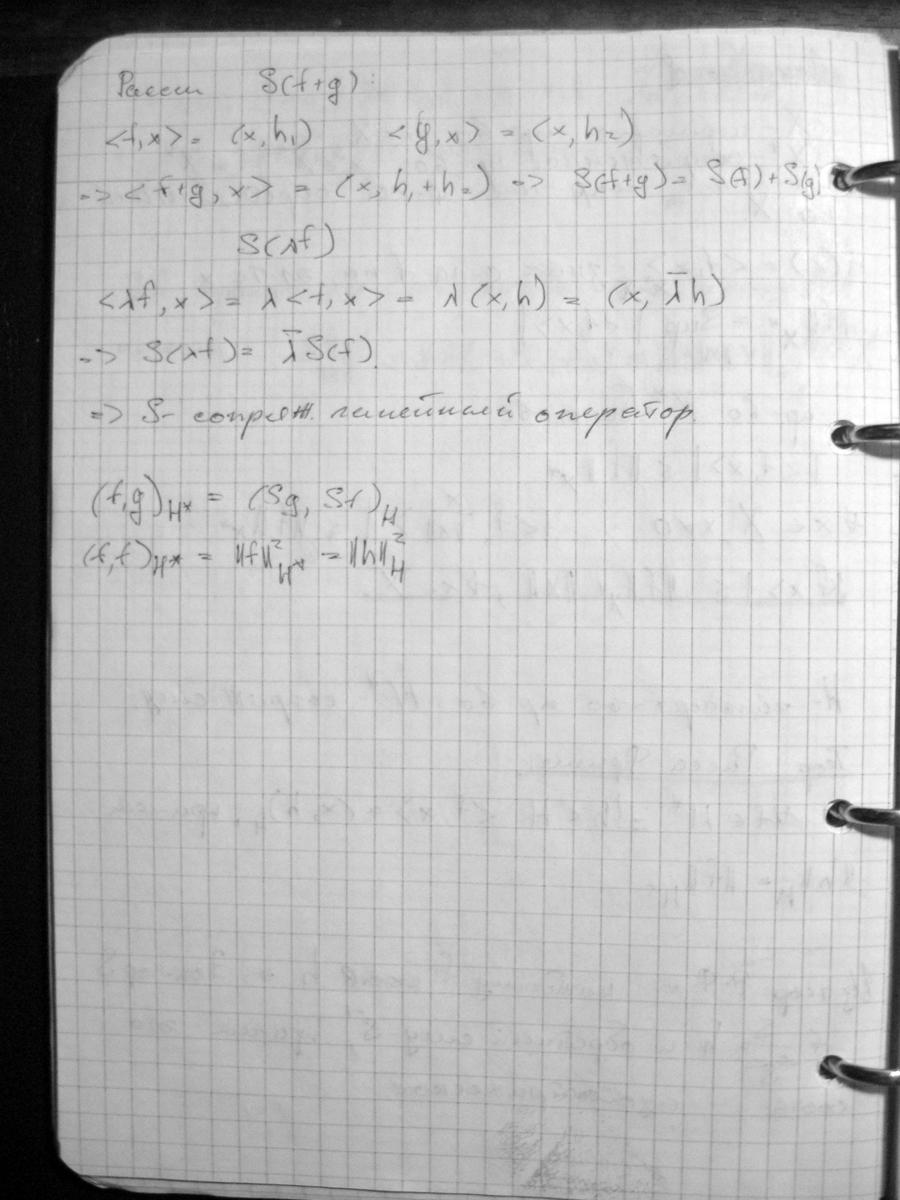 Рассм S(f+g):
<f,x> = (x,h₁) <g,x> = (x,h₂)
=> <f+g,x> = (x,h₁+h₂) => S(f+g) = S(f)+S(g)
S(λf)
<λf,x> = λ<f,x> = λ(x,h) = (x,λ̄h)
=> S(λf) = λ̄S(f).
=> S- сопряж. линейный оператор.
(f,g)_H* = (Sg, Sf)_H
(f,f)_H* = ||f||²_H* = ||h||²_H